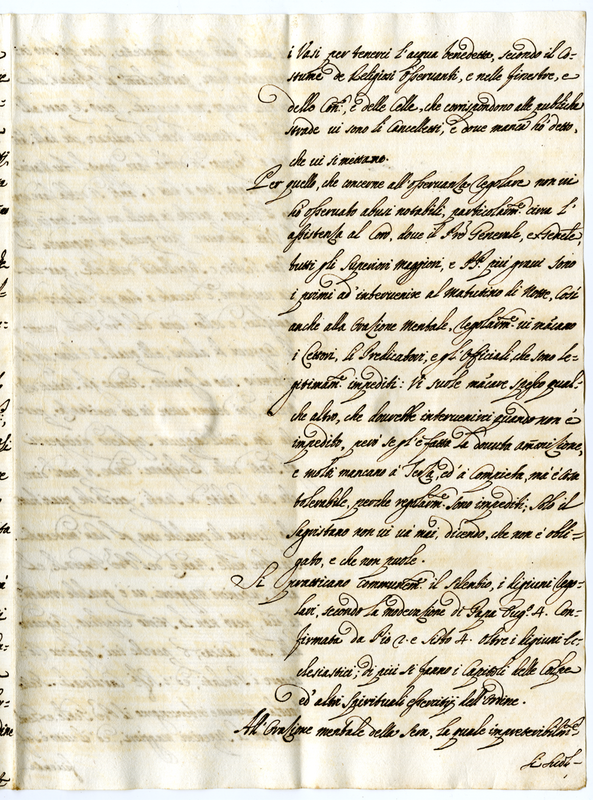 i Vasi per tenervi l'acqua benedetta, secondo il Co-
stume de Religiosi Osservanti, e nelle finestre, e
dello Con.to, e delle Celle, che corrispondono alle publiche
strade vi sono li Cancelletti, e dove manca hò detto,
che vi si mettano.
Per quello, che concerne all'osservanza Regolare non vi
hò osservato abusi notabili, particolarm.e circa l'
assistenza al Coro, dove il Pre Generale, e
tutti gli Superiori Maggiori, e PP. più gravi sono
i primi ad' intervenire al Matutino di Notte, Così
anche alla Orazione Mentale, Regolarm.e vi mãcano
i Lettori, li Predicatori, e gl'Officiali, che sono le-
gitimam.e impediti: Vi suole mãcare spesso qual-
che altro, che dovrebbe intervenirci quando non è
impedito, però se gl'è fatta la dovuta am̃onizione,
e molti mancano à Terza, ed' à Compieta, ma è cosa
tolerabile, perche regolarm.e sono impediti; Solo il
Sagristano non vi và mai, dicendo, che non è obli-
gato, e che non vuole.
Si pratticano communem.e il silentio, i digiuni Rego-
lari, secondo la moderazione di Papa Eug.o 4. Con-
firmata da Pio 2. e Sisto 4. oltre i digiuni Ec-
clesiastici; di più si fanno i Capitoli delle Colpe
ed' altri Spirituali essercitij dell'Ordine.
All'Orazione mentale della Sera, la quale